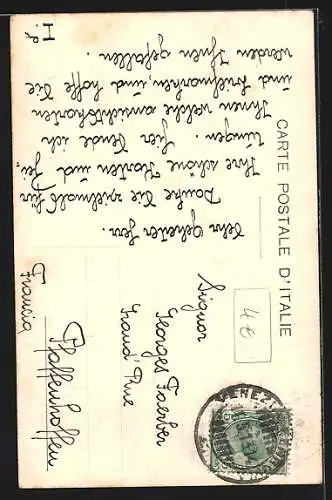 CARTE POSTALE D'ITALIE
Sehr geherter Herr.
Danke Sie vielmals für
Ihre schöne Karten und Zei-
tungen. Hier sende ich
Ihnen welche ansichtskarten
und briefmarken, und hoffe Sie
werden Ihnen gefallen.
4 €
Signor
Georges Faerber
Grand' Rue
Pfaffenhoffen
Francia
VENEZIA